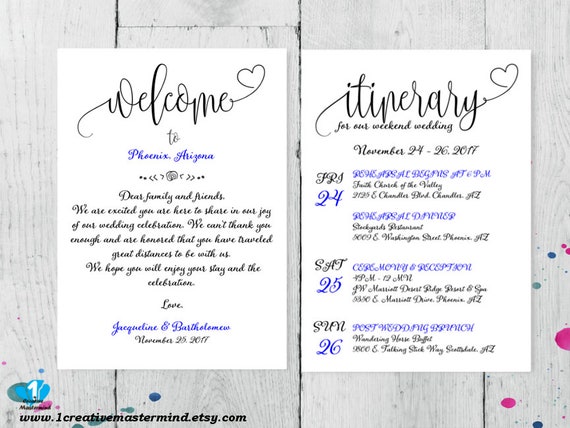 welcome
to
Phoenix, Arizona
Dear family and friends.
We are excited you are here to share in our joy
of our wedding celebration. We can't thank you
enough and are honored that you have traveled
great distances to be with us.
We hope you will enjoy your stay and the
celebration.
Love,
Jacqueline & Bartholomew
November 25, 2017
itinerary
for our weekend wedding
November 24 - 26, 2017
FRI
24
REHEARSAL BEGINS AT 6 PM
Faith Church of the Valley
2125 E Chandler Blvd. Chandler, AZ
REHEARSAL DINNER
Stockyards Restaurant
5009 E. Washington Street, Phoenix, AZ
SAT
25
CEREMONY & RECEPTION
4PM - 12 MN
JW Marriott Desert Ridge Resort & Spa
5350 E. Marriott Drive, Phoenix, AZ
SUN
26
POST WEDDING BRUNCH
Wandering Horse Buffet
9800 E. Talking Stick Way Scottsdale, AZ
1
Creative
Mastermind
www.1creativemastermind.etsy.com